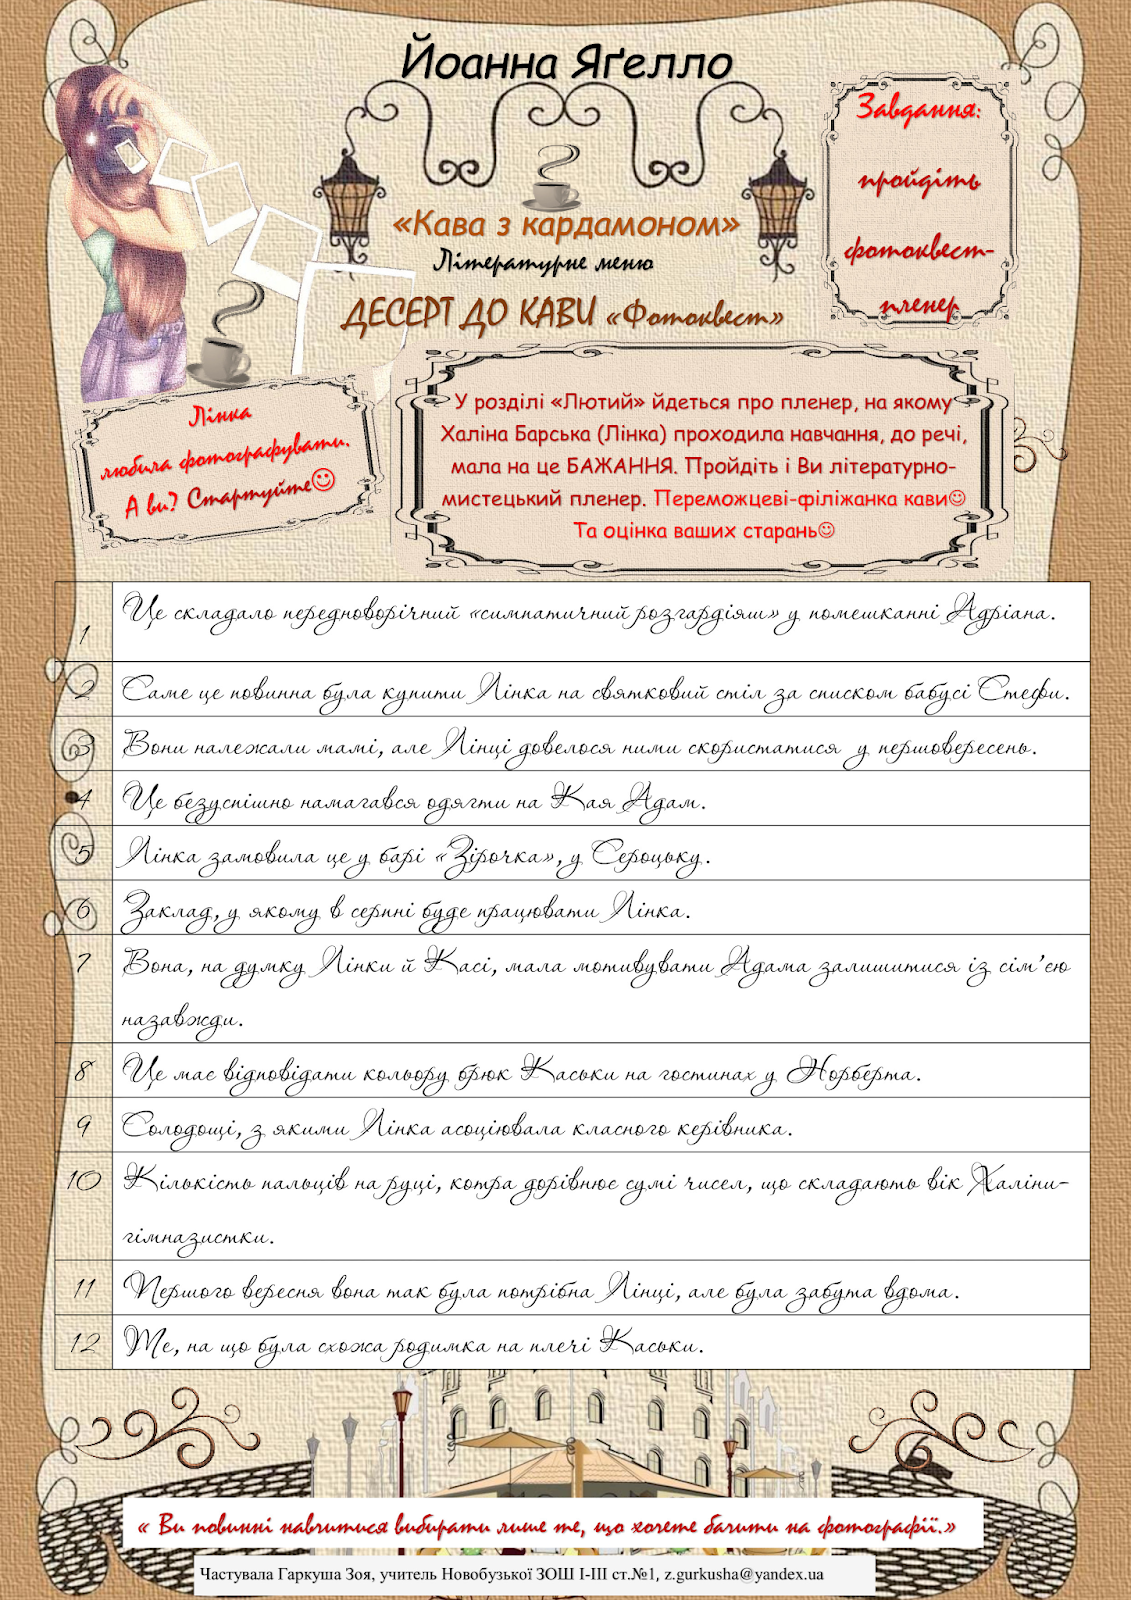 Йоанна Яґелло
«Кава з кардамоном»
Літературне меню
ДЕСЕРТ ДО КАВИ «Фотоквест»
Завдання:
пройдіть
фотоквест-
пленер
Лінка
любила фотографувати.
А ви? Стартуйте☺
У розділі «Лютий» йдеться про пленер, на якому
Халіна Барська (Лінка) проходила навчання, до речі,
мала на це БАЖАННЯ. Пройдіть і Ви літературно-
мистецький пленер. Переможцеві-філіжанка кави☺
Та оцінка ваших старань☺
1 Це складало передноворічний «симпатичний розгардіяш» у помешканні Адріана.
2 Саме це повинна була купити Лінка на святковий стіл за списком бабусі Стефи.
3 Вони належали мамі, але Лінці довелося ними скористатися у першовересень.
4 Це безуспішно намагався одягти на Кая Адам.
5 Лінка замовила це у барі «Зірочка», у Сероцьку.
6 Заклад, у якому в серпні буде працювати Лінка.
7 Вона, на думку Лінки й Касі, мала мотивувати Адама залишитися із сім'єю
назавжди.
8 Це має відповідати кольору брюк Каськи на гостинах у Норберта.
9 Солодощі, з якими Лінка асоціювала класного керівника.
10 Кількість пальців на руці, котра дорівнює сумі чисел, що складають вік Халіни-
гімназистки.
11 Першого вересня вона так була потрібна Лінці, але була забута вдома.
12 Те, на що була схожа родимка на плечі Каськи.
« Ви повинні навчитися вибирати лише те, що хочете бачити на фотографії.»
Частувала Гаркуша Зоя, учитель Новобузької ЗОШ І-ІІІ ст.№1, z.gurkusha@yandex.ua